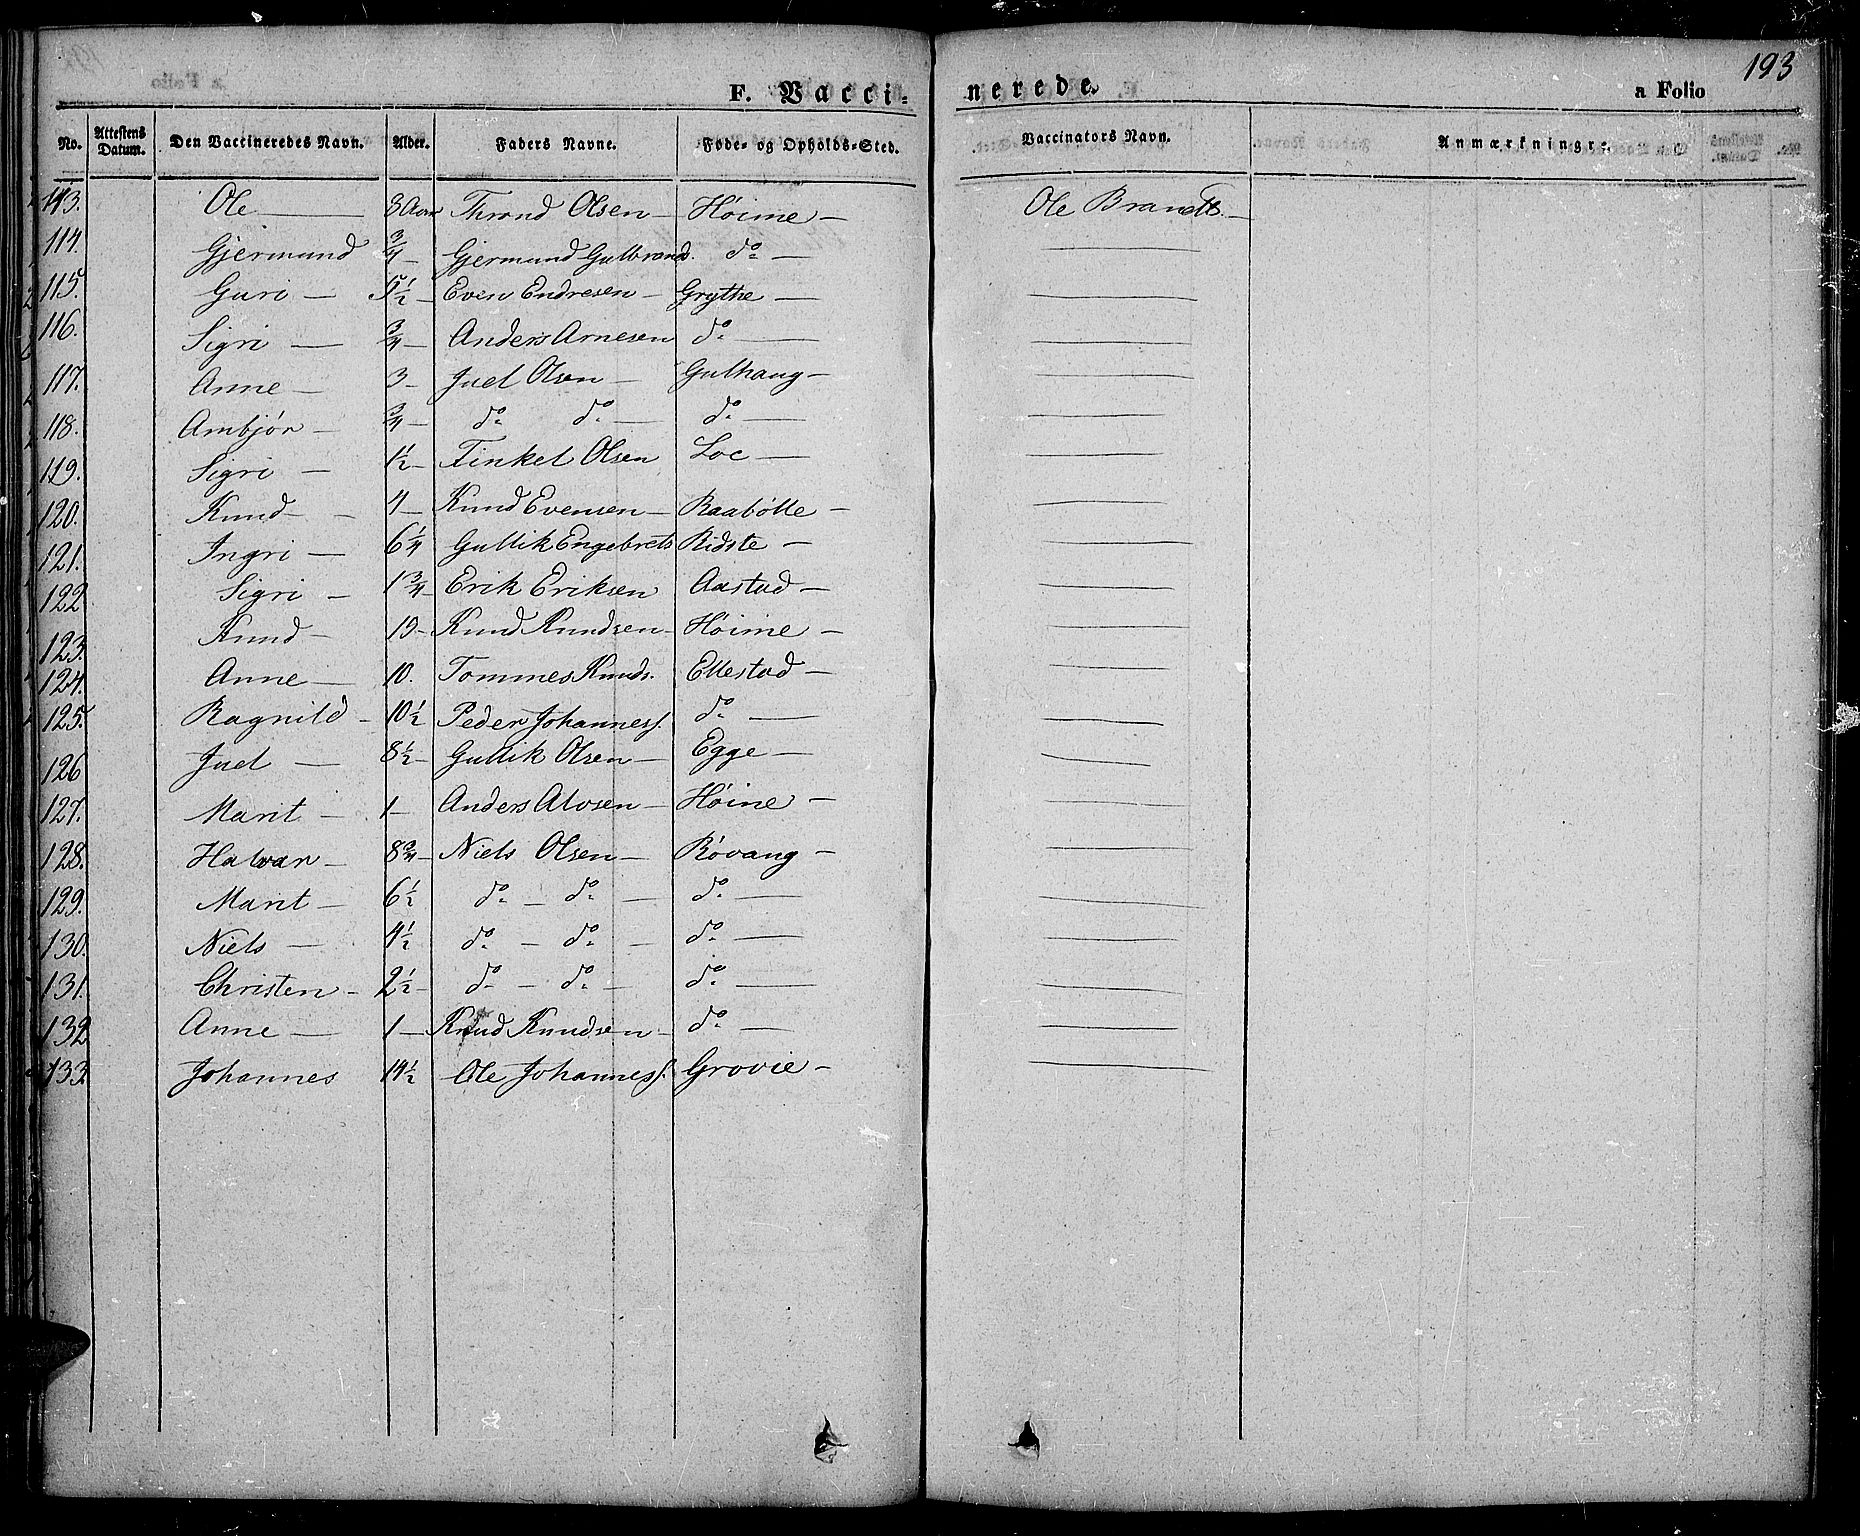 193
F. Vaccinerede. a Folio
No. Attestens Datum. Den Vaccineredes Navn. Alder. Faders Navne. Føde- og Opholds-Sted. Vaccinators Navn. Anmærkningre.
113. Ole — 8 Aar Thrond Olsen — Høime — Ole Brandt. —
114. Gjermund 3/4 — Gjermund Gulbrands. do — —
115. Guri — 5 1/2 — Even Endresen — Grythe — —
116. Sigri — 3/4 — Anders Arnesen do — —
117. Anne — 3 — Juel Olsen — Gulhaug — —
118. Ambjør — 3/4 — do do — do — —
119. Sigri — 1 1/2 — Finkel Olsen Loe — —
120. Knud — 4 — Knud Evensen — Raabølle — —
121. Ingri — 6 1/4 Gullik Engebrets Ridste — —
122 Sigri — 1 3/4 — Erik Eriksen Aastad — —
123. Knud — 15 — Knud Knudsen — Høime — —
124. Anne — 10. Tommes Knuds. Ellestad — —
125. Ragnild — 10 1/2 Peder Johanness. do — —
126 Juel — 8 1/2 — Gullik Olsen — Egge — —
127. Marit — 1 — Anders Alvsen — Høine — —
128. Halvar — 8 3/4 — Niels Olsen — Røvang — —
129. Marit — 6 1/2 do — do — do — —
130. Niels — 4 1/2 do — do — do — —
131. Christen — 2 1/2 — do — do — do — —
132 Anne — 1 — Knud Knudsen — do — —
133 Johannes 14 1/2 Ole Johanness. Grovie — —